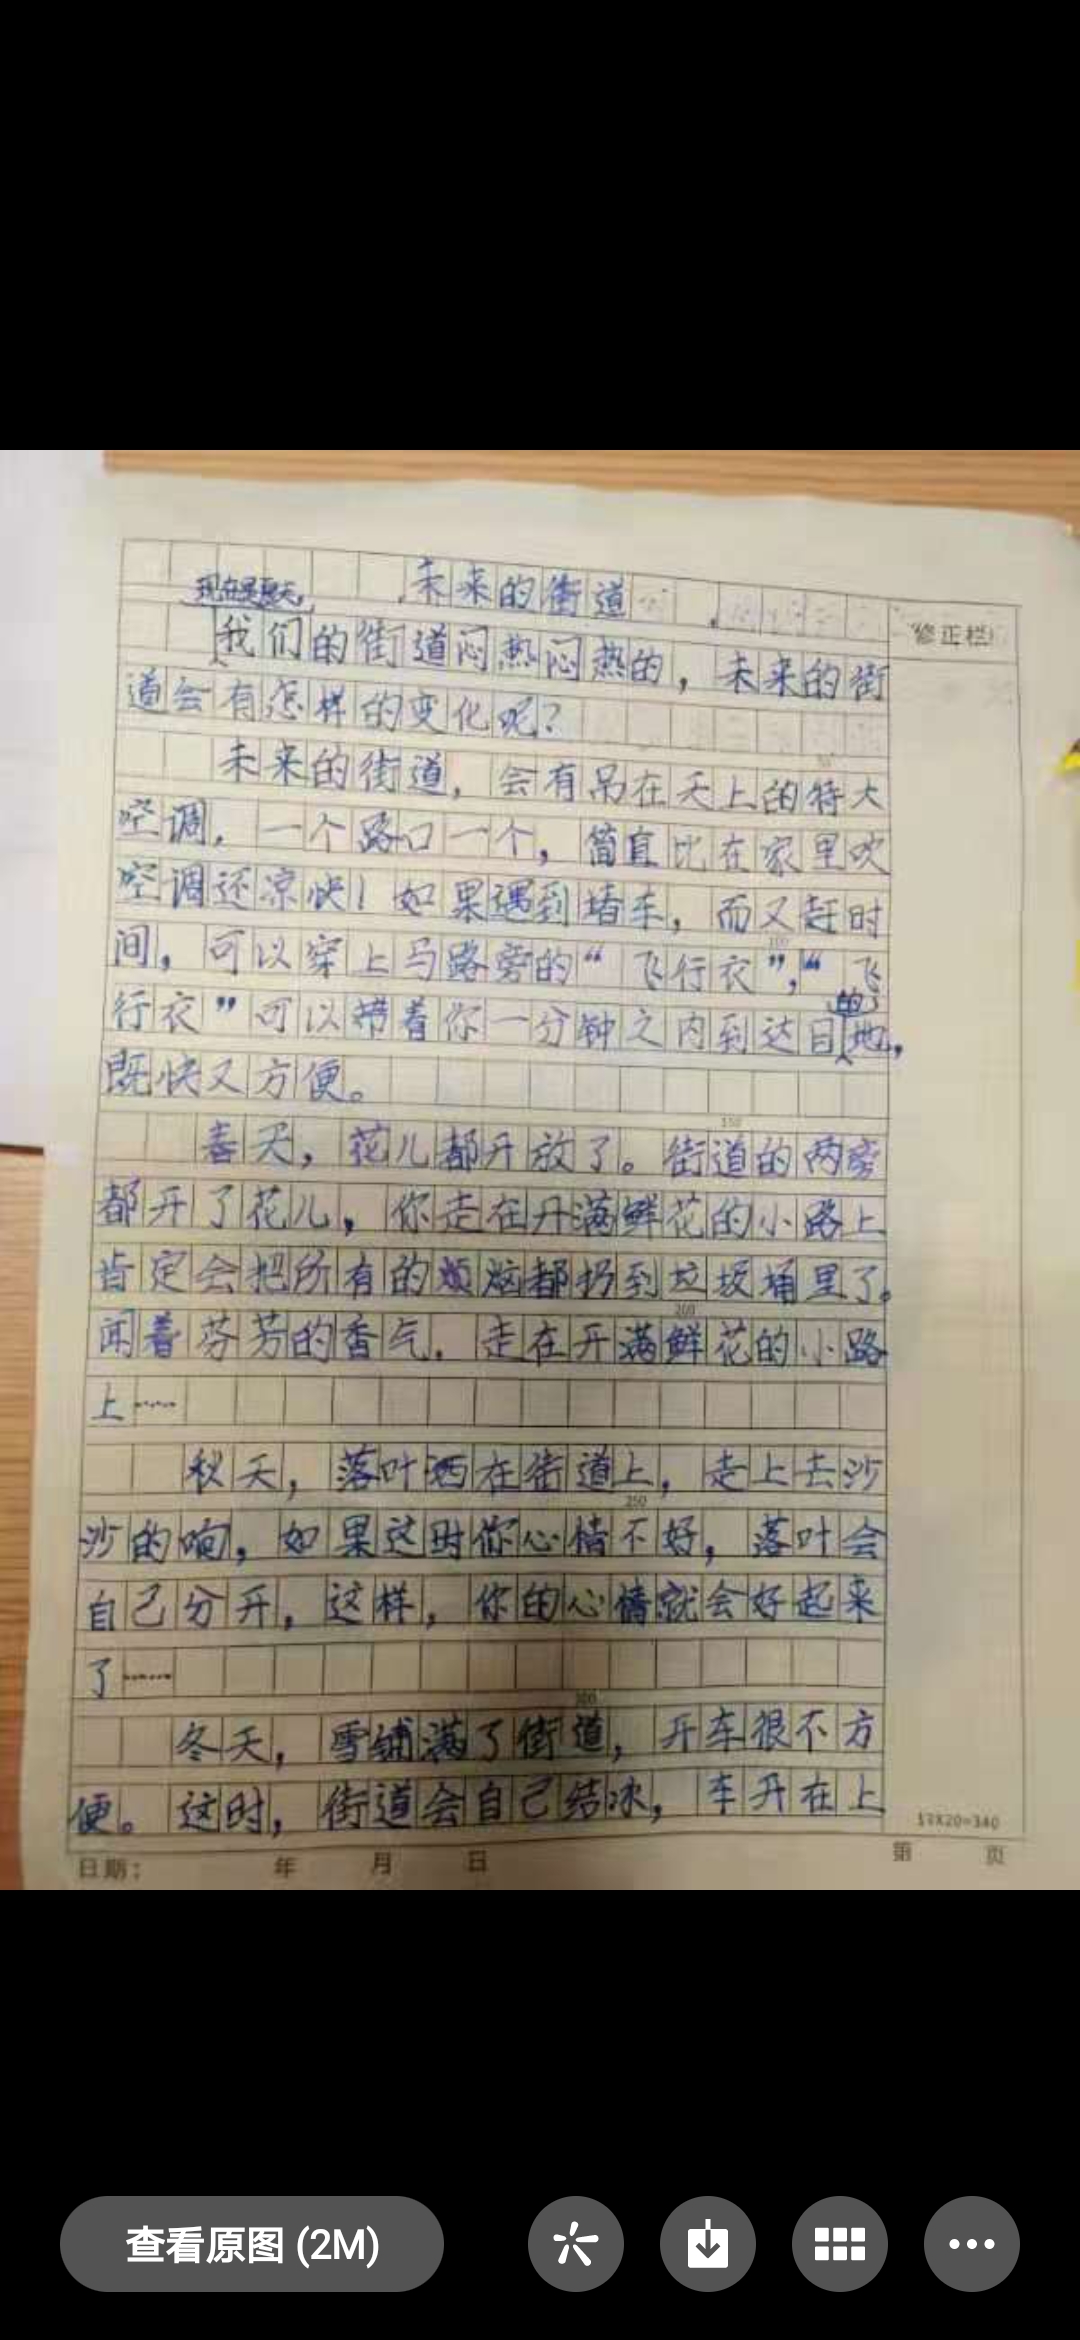 未来的街道
现在是夏天，
我们的街道闷热闷热的，未来的街
道会有怎样的变化呢？
未来的街道，会有吊在天上的特大
空调，一个路口一个，简直比在家里吹
空调还凉快！如果遇到堵车，而又赶时
间，可以穿上马路旁的“飞行衣”，“飞
行衣”可以带着你一分钟之内到达目的地，
既快又方便。
春天，花儿都开放了。街道的两旁
都开了花儿，你走在开满鲜花的小路上
肯定会把所有的烦恼都扔到垃圾桶里了。
闻着芬芳的香气，走在开满鲜花的小路
上……
秋天，落叶洒在街道上，走上去沙
沙的响，如果这时你心情不好，落叶会
自己分开，这样，你的心情就会好起来
了……
冬天，雪铺满了街道，开车很不方
便。这时，街道会自己结冰，车开在上
修正栏
50
100
150
200
250
300
17X20=340
日期： 年 月 日
第 页
查看原图 (2M)